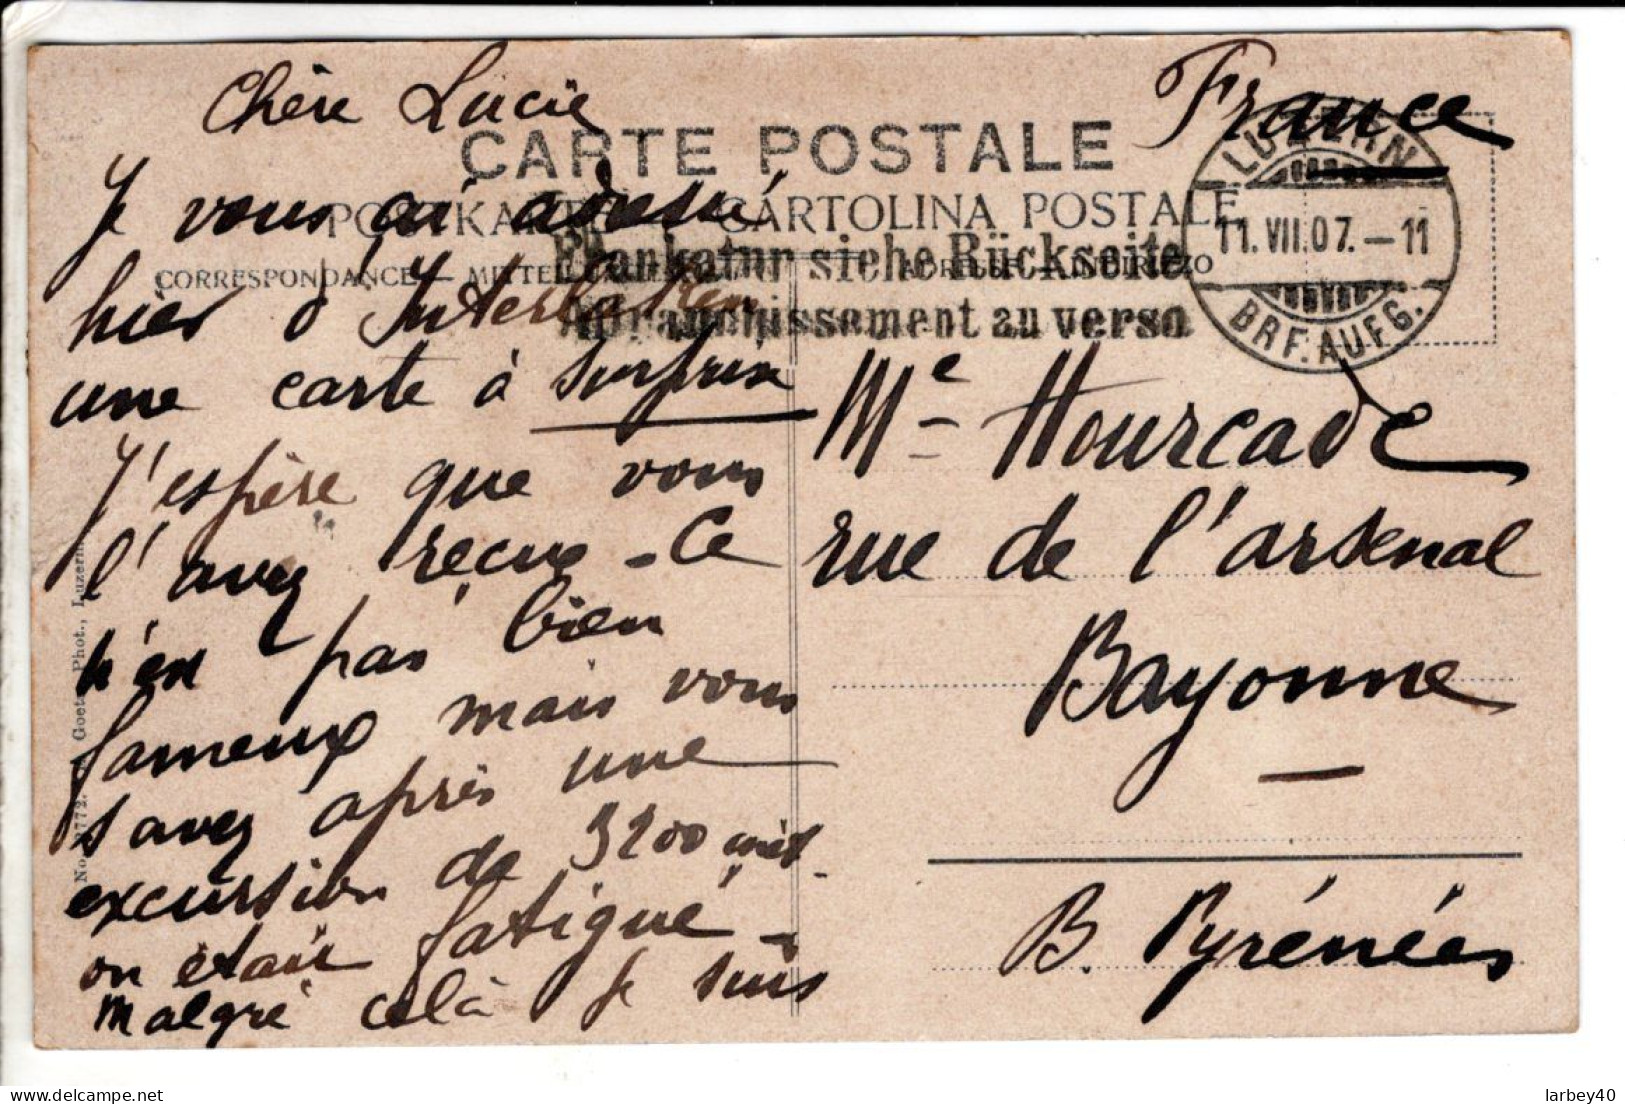 Chère Lucie
France
CARTE POSTALE
POSTKARTE CARTOLINA POSTALE
CORRESPONDANCE — MITTEIL
Frankatur siehe Rückseite
Affranchissement au verso
LUZERN
11.VII.07.–11
BRF.AUFG.
Je vous ai adressé
hier d'Interlaken
une carte à surprix
J'espère que vous
l'avez reçue - Ce
n'est pas bien
fameux mais vous
savez après une
excursion de 3200 mèt.
on était fatigué -
malgré celà je suis
Me Hourcade
rue de l'arsenal
Bayonne
B. Pyrénées
Goetz Phot., Luzern.
larbey40